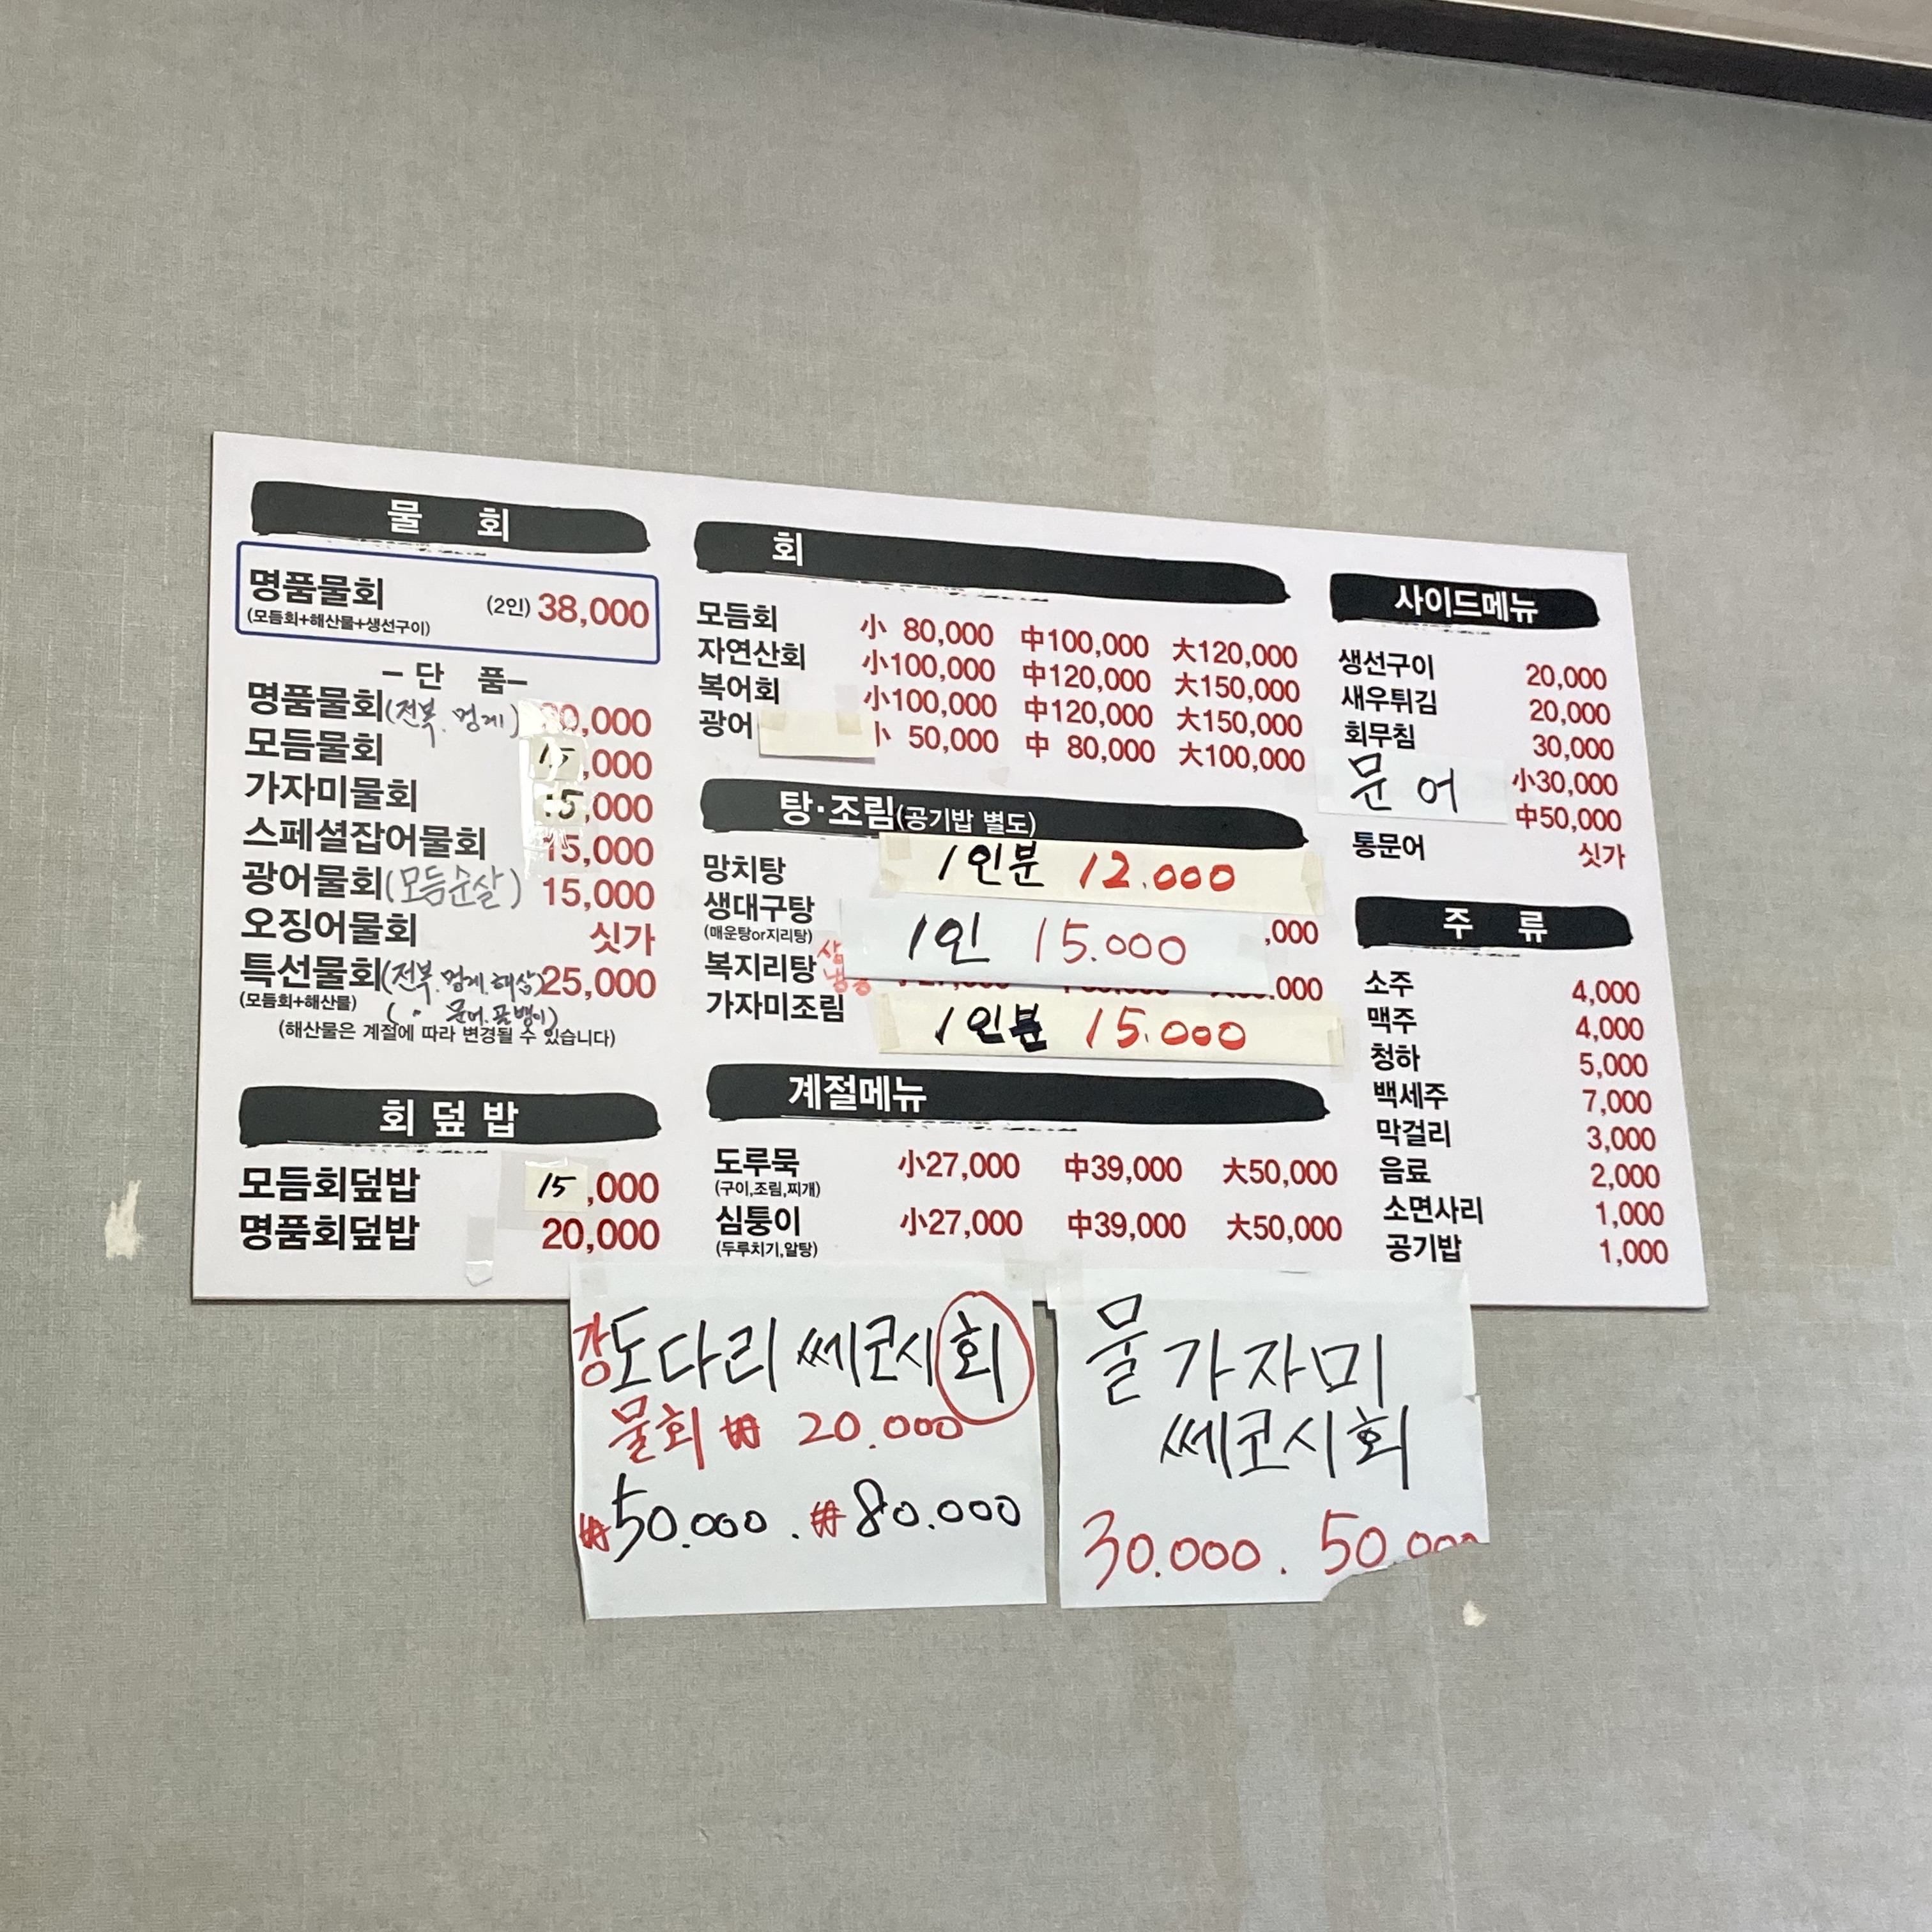 물 회
명품물회 (2인) 38,000
(모듬회+해산물+생선구이)
-단 품-
명품물회(전복.멍게) 0,000
모듬물회 15,000
가자미물회 15,000
스페셜잡어물회 15,000
광어물회(모듬순살) 15,000
오징어물회 싯가
특선물회(전복.멍게.해삼) 25,000
(모듬회+해산물) ( " 문어.골뱅이)
(해산물은 계절에 따라 변경될 수 있습니다)
회 덮 밥
모듬회덮밥 15,000
명품회덮밥 20,000
회
모듬회 小 80,000 中100,000 大120,000
자연산회 小100,000 中120,000 大150,000
복어회 小100,000 中120,000 大150,000
광어 小 50,000 中 80,000 大100,000
탕·조림(공기밥 별도)
망치탕 1인분 12.000
생대구탕 1인 15.000 ,000
(매운탕or지리탕)
복지리탕 ,000
가자미조림 1인분 15.000
계절메뉴
도루묵 小27,000 中39,000 大50,000
(구이,조림,찌개)
심퉁이 小27,000 中39,000 大50,000
(두루치기,알탕)
사이드메뉴
생선구이 20,000
새우튀김 20,000
회무침 30,000
문어 小30,000
中50,000
통문어 싯가
주 류
소주 4,000
맥주 4,000
청하 5,000
백세주 7,000
막걸리 3,000
음료 2,000
소면사리 1,000
공기밥 1,000
강도다리 쎄코시 회
물회 ₩ 20.000
₩50.000 . ₩80.000
물가자미
쎄코시회
30.000 . 50.000